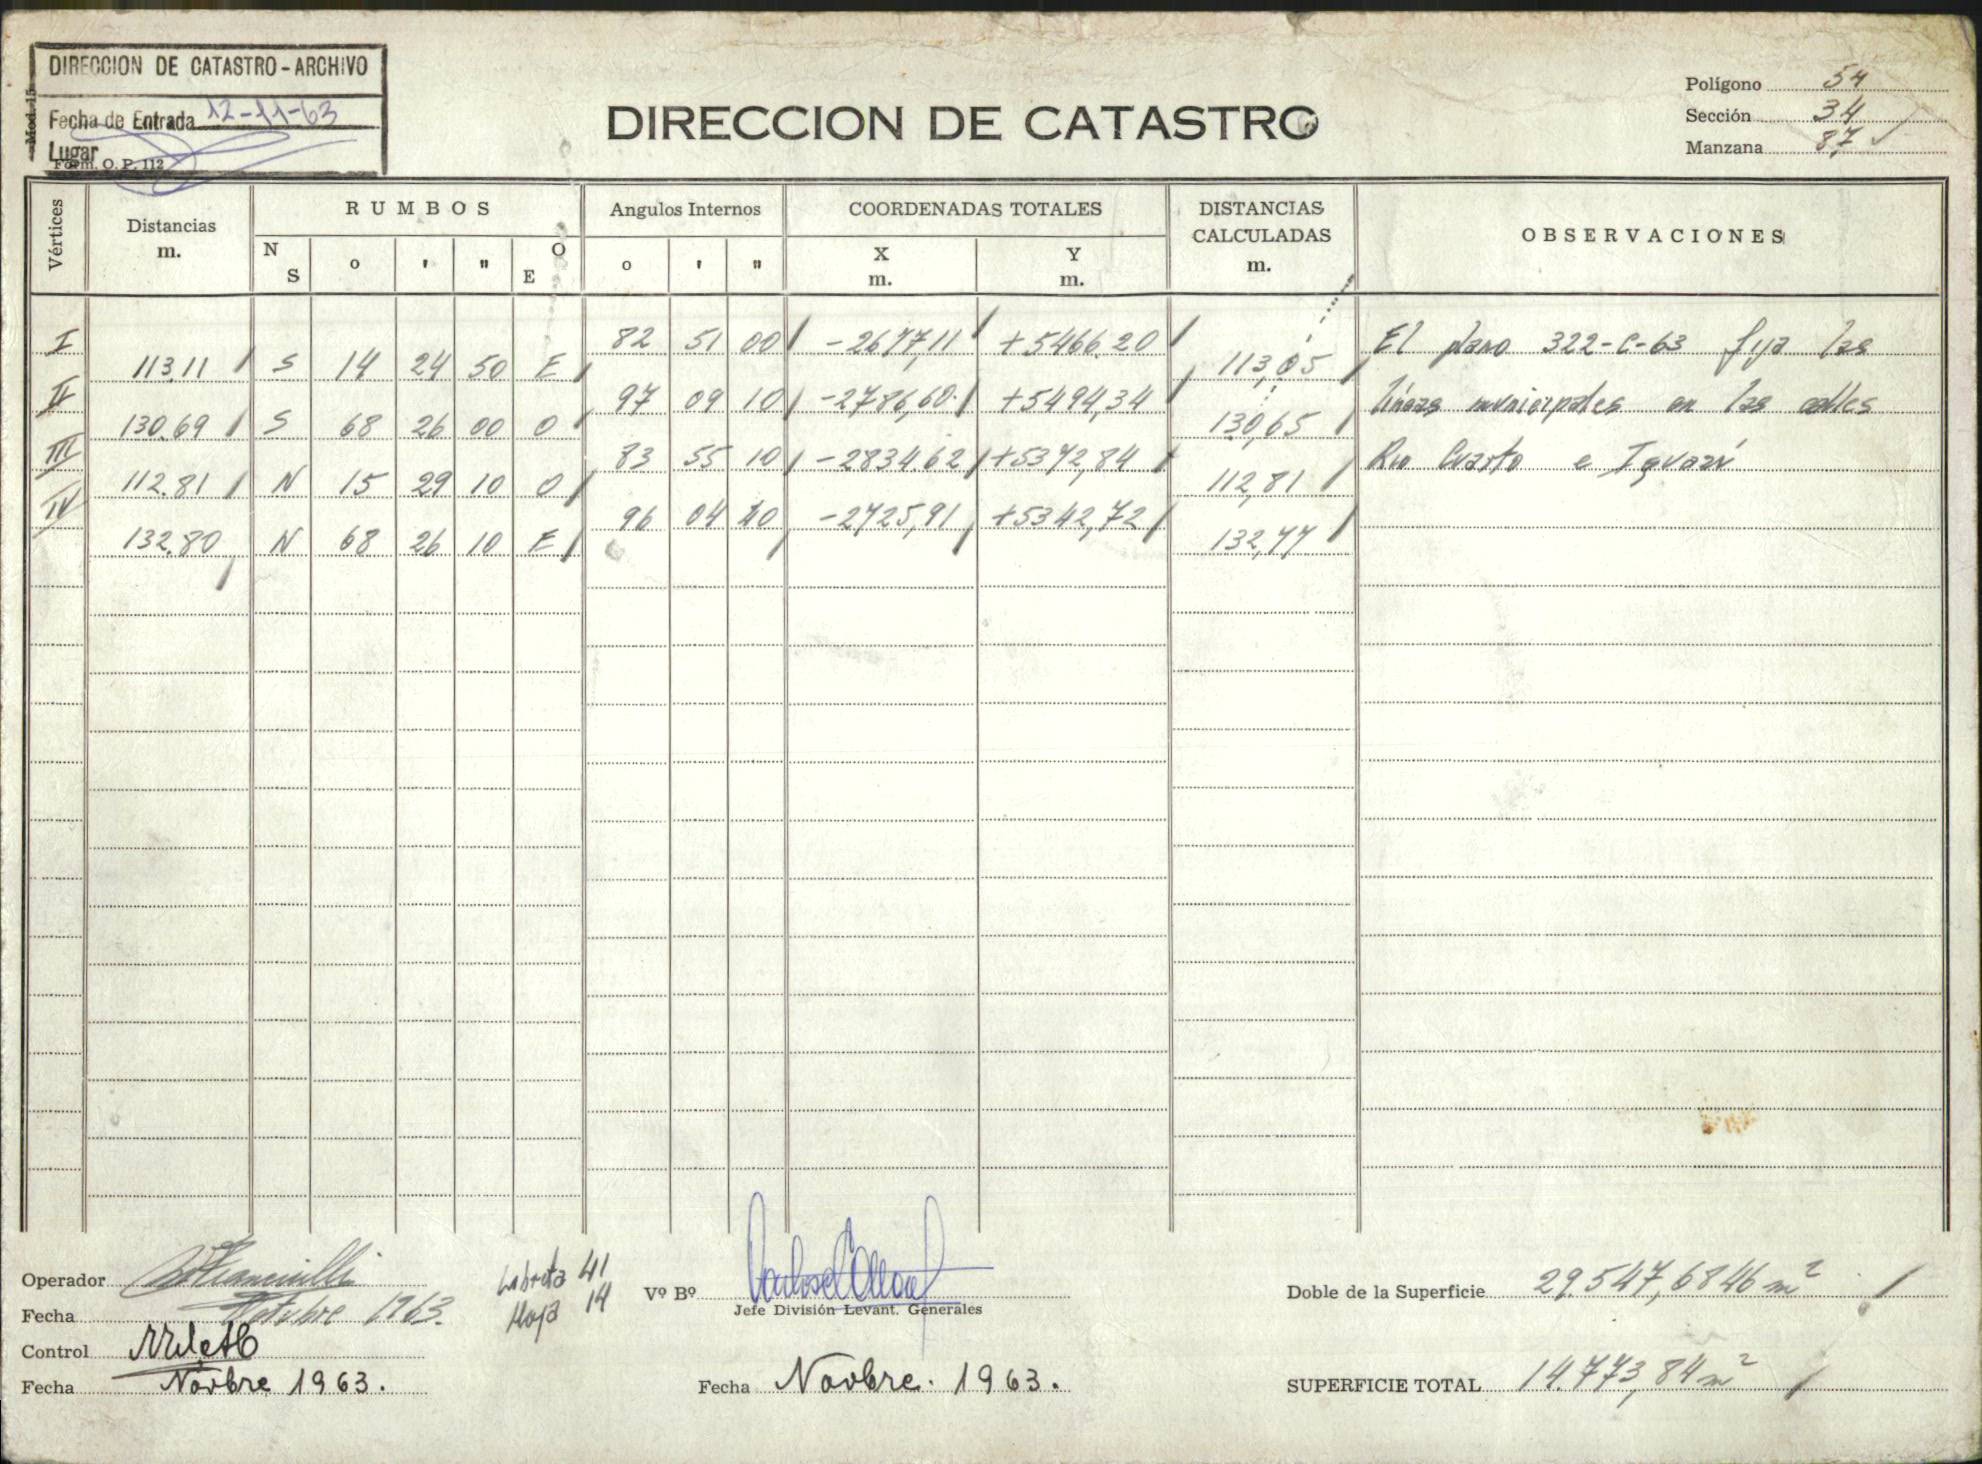 DIRECCION DE CATASTRO - ARCHIVO
Mod. 15
Fecha de Entrada 12-11-63
Lugar
Form. O. P. 112
DIRECCION DE CATASTRO
Polígono 54
Sección 34
Manzana 87
Vértices
Distancias m.
RUMBOS
N S o ' " O E
Angulos Internos
o ' "
COORDENADAS TOTALES
X m. Y m.
DISTANCIAS CALCULADAS m.
OBSERVACIONES
I 82 51 00 -2677,11 +5466.20
113.11 S 14 24 50 E 113,05
II 97 09 10 -2786,60 +5494,34
130.69 S 68 26 00 O 130,65
III 83 55 10 -2834.62 +5372,84
112.81 N 15 29 10 O 112,81
IV 96 04 40 -2725,91 +5342,72
132.80 N 68 26 10 E 132,77
El plano 322-C-63 fija las
líneas municipales en las calles
Rio Cuarto e Iguazú
Operador
Fecha Octubre 1963.
Control
Fecha Novbre 1963.
Libreta 41
Hoja 14
Vº Bº
Jefe División Levant. Generales
Fecha Novbre. 1963.
Doble de la Superficie 29.547,6846 m²
SUPERFICIE TOTAL 14.773,84 m²